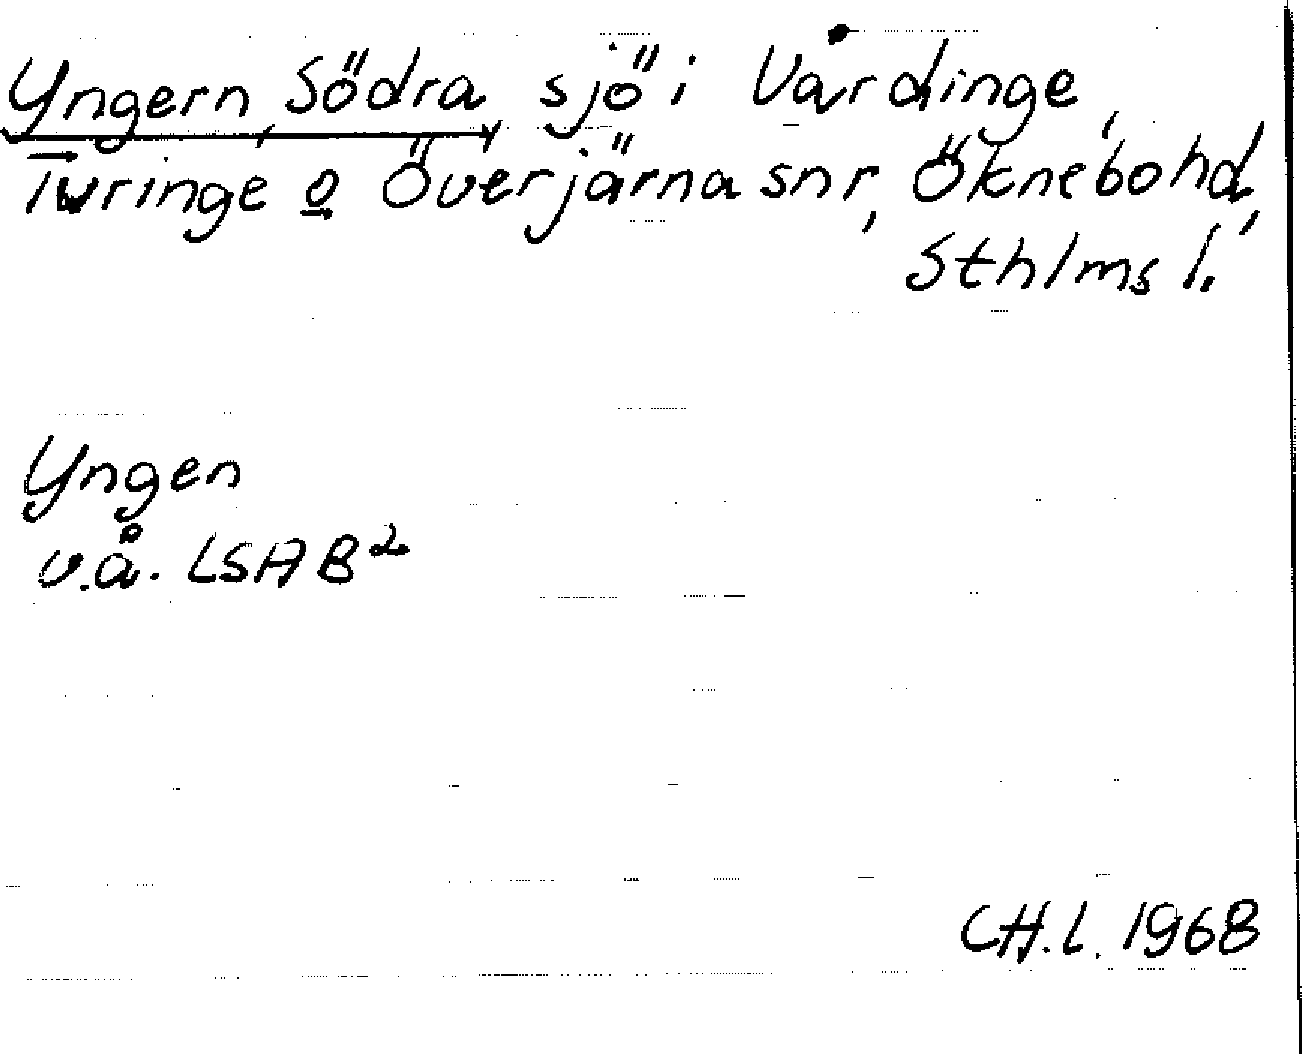 Yngern, Södra, sjö i Vårdinge,
Turinge o Överjärna snr, Öknebo hd,
Sthlms l.
Yngen
v.å. LSAB²
CH.L. 1968